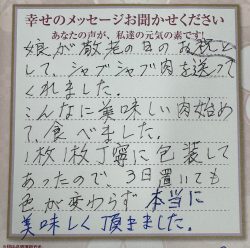 幸せのメッセージお聞かせください
あなたの声が、私達の元気の素です!
娘が敬老の日のお祝と
して、シャブシャブ肉を送って
くれました。
こんなに美味しい肉始め
て、食べました。
1枚1枚丁寧に包装して
あったので、3日置いても
色が変わらず 本当に
美味しく頂きました。